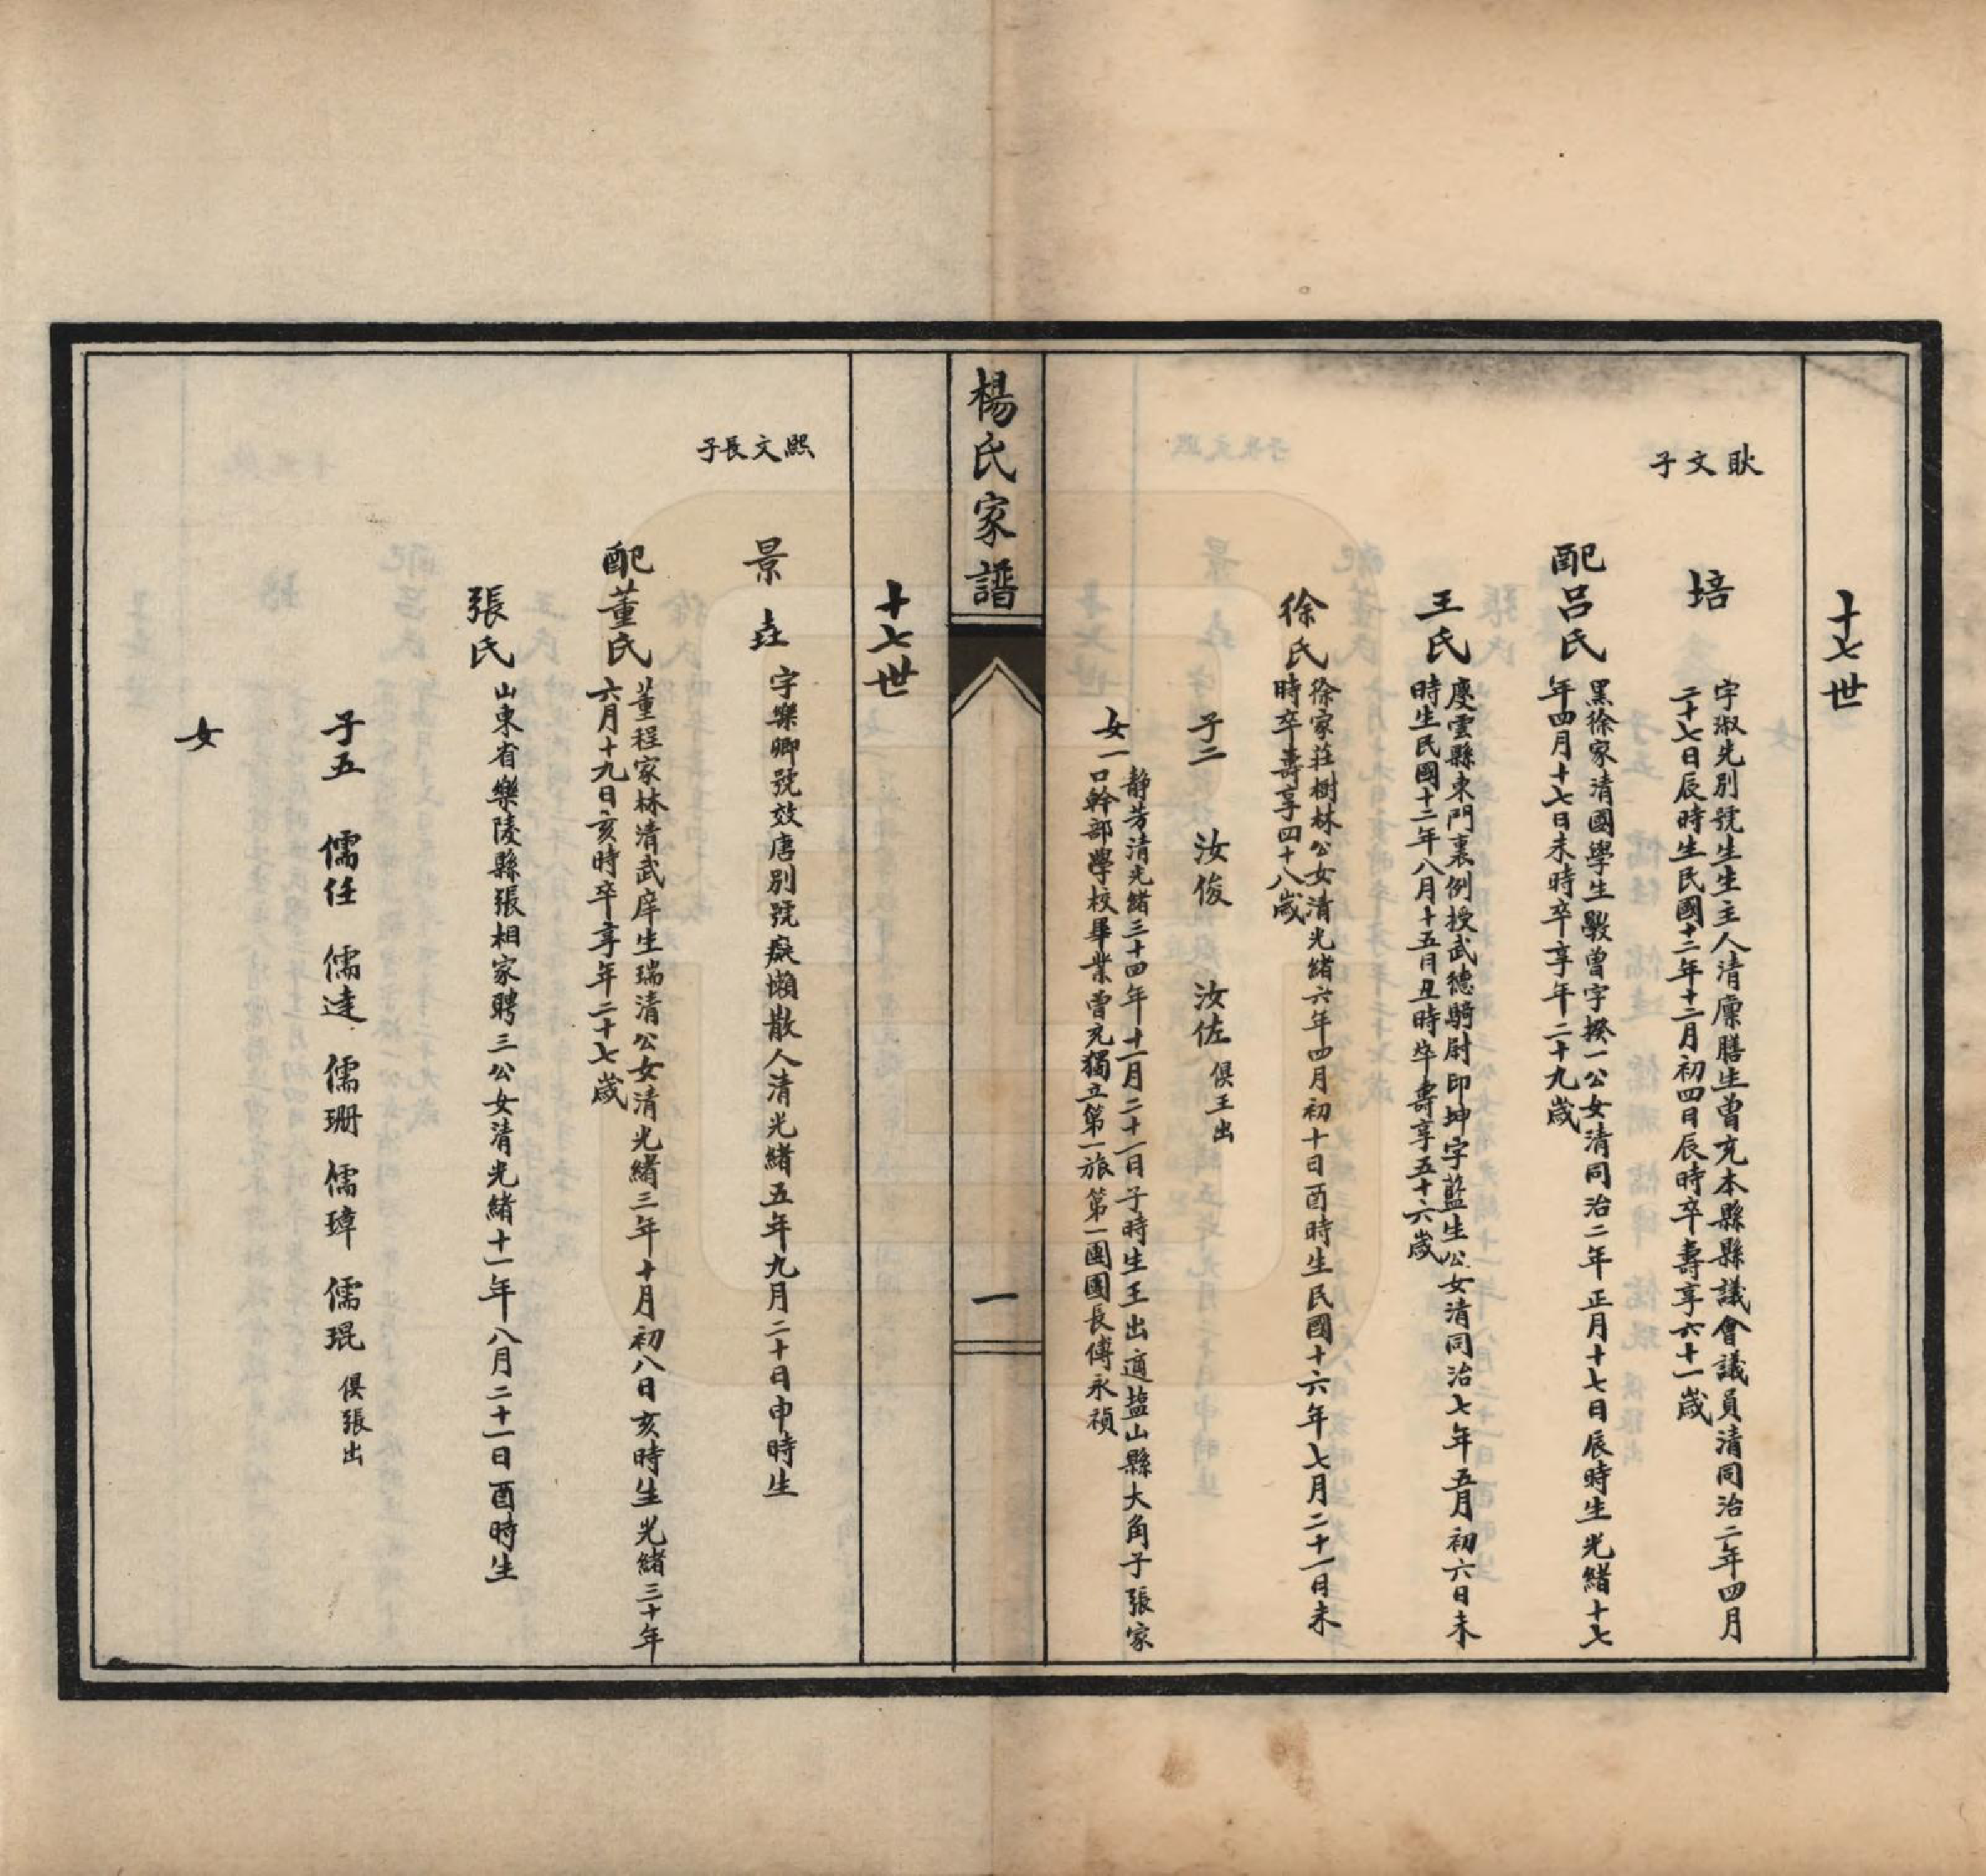 十七世
耿文子
培
字淑先別號生生主人清廩膳生曾充本縣縣議會議員清同治二年四月
二十七日辰時生民國十二年十二月初四日辰時卒壽享六十一歲
配呂氏
黑徐家清國學生毆曾字揆一公女清同治二年正月十七日辰時生光緒十七
年四月十七日未時卒享年二十九歲
王氏
慶雲縣東門裏例授武德騎尉印坤字藍生公女清同治七年五月初六日未
時生民國十二年八月十五日丑時卒壽享五十六歲
徐氏
徐家莊樹林公女清光緒六年四月初十日酉時生民國十六年七月二十一日未
時卒壽享四十八歲
子二 汝俊 汝佐 俱王出
女一
靜芳清光緒三十四年十一月二十一日子時生王出適盐山縣大角子張家
口幹部學校畢業曾充獨立第一旅第一團團長傅永禎
楊氏家譜
一
十七世
熙文長子
景垚
字樂卿號效唐別號癡懶散人清光緒五年九月二十日申時生
配董氏
董程家林清武庠生瑞清公女清光緒三年十月初八日亥時生光緒三十年
六月十九日亥時卒享年二十七歲
張氏
山東省樂陵縣張相家聘三公女清光緒十一年八月二十一日酉時生
子五 儒任 儒逹 儒珊 儒璋 儒琨 俱張出
女